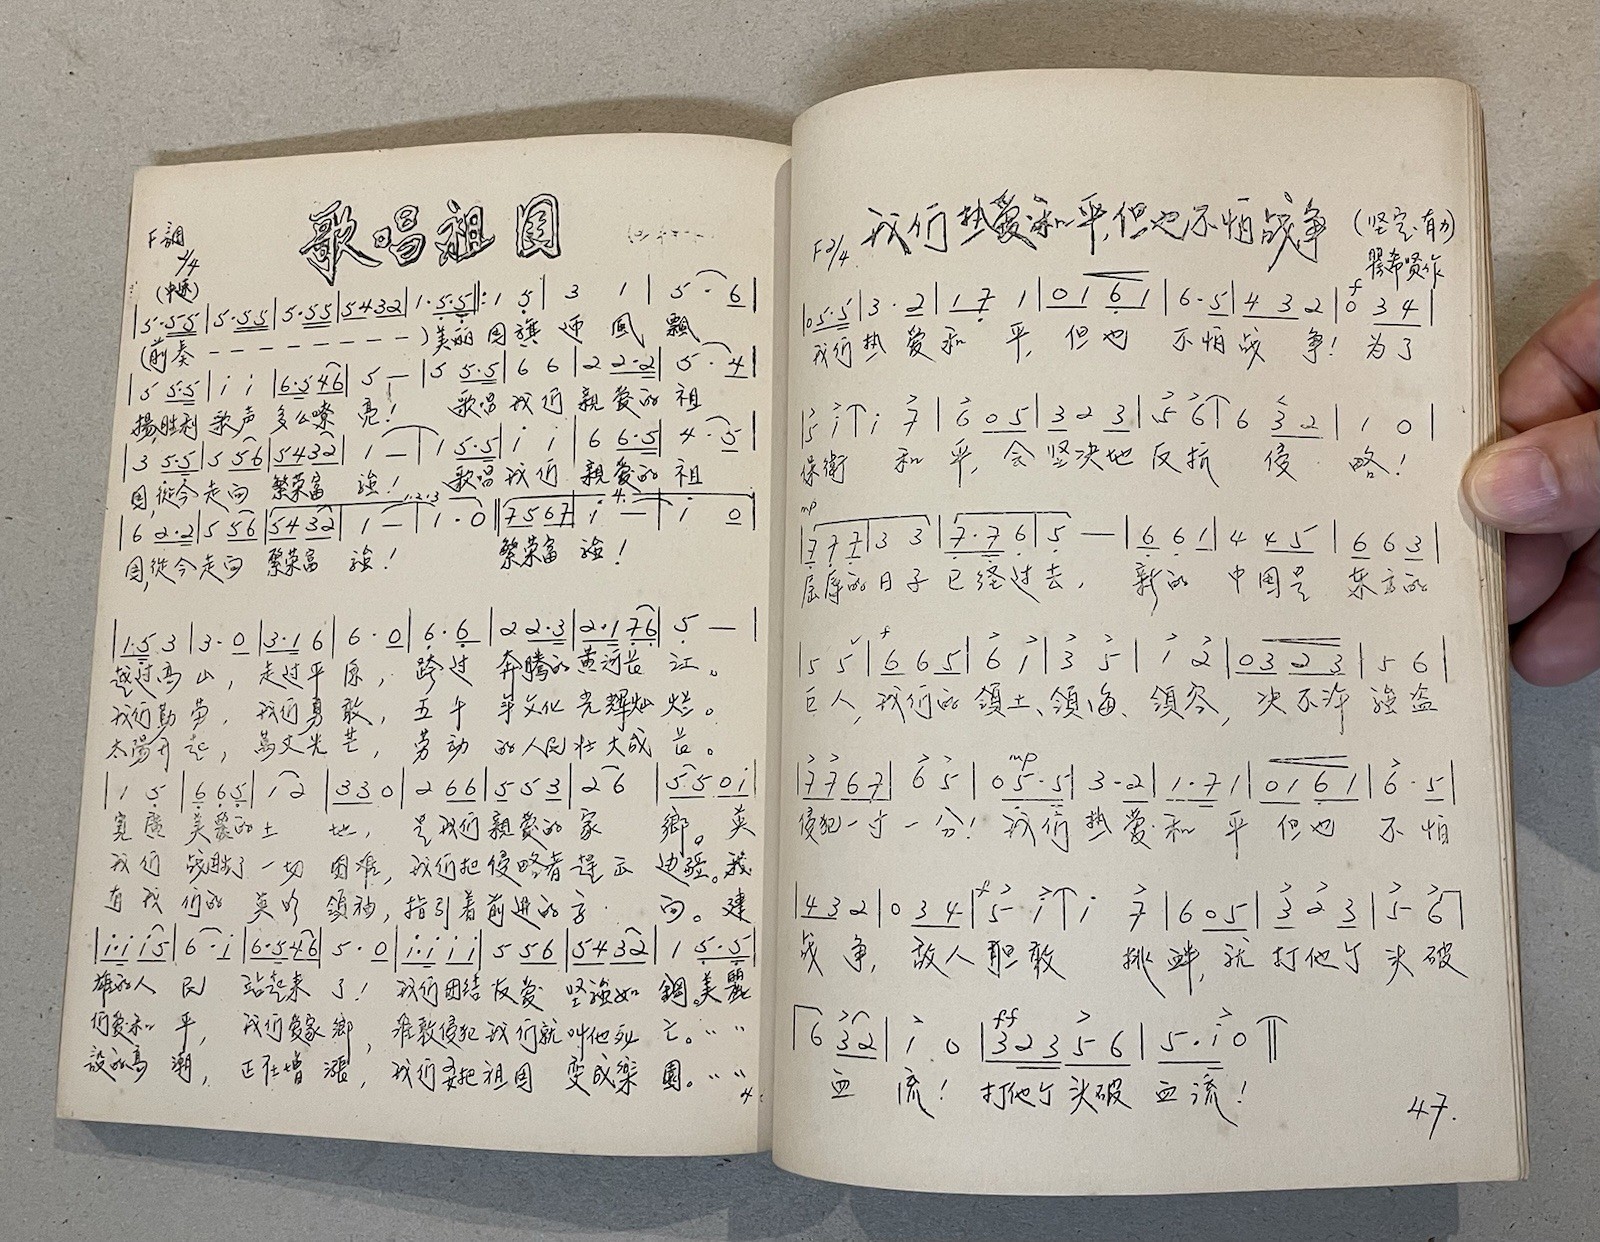 歌唱祖囯
F調
2/4
(中速)
|5·55|5·55|5·55|5432|1·5·5‖:1 5|3 1|5·6|
(前奏 - - - - - - - - - )美丽囯旗迎風飄
|5 5·5|i i|6·546|5 —|5 5·5|6 6|2 2·2|5·4|
揚勝利歌声多么嘹亮! 歌唱我们親爱的祖
|3 5·5|5 56|5432|1 —|1 5·5|i i|6 6·5|4·5|
囯,從今走向繁荣富強! 歌唱我们親爱的祖
1·2·3 4.
|6 2·2|5 56|5432|1 —|1·0‖7567|i —|i 0|
囯,從今走向繁荣富強! 繁荣富強!
|1·5 3|3·0|3·1 6|6·0|6·6|2 2·3|2·1 76|5 —|
越过高山, 走过平原, 跨过奔騰的黄河長江。
我们勤劳, 我们勇敢, 五千年文化光輝灿烂。
太陽升起, 萬丈光芒, 劳动的人民壮大成長。
|1 5|6 65|1 2|33 0|2 66|5 5 3|2 6|5·5 0i|
寬廣美麗的土地, 是我们親爱的家鄉。英
我们战勝了一切困难, 我们把侵略者趕正边疆。我
有我们的英明領袖, 指引着前进的方向。建
|i·i i5|6·i|6·546|5·0|i·i i i|5 56|5432|1 5·5|
雄的人民站起来了! 我们团结友爱坚強如鋼。美麗
们爱和平, 我们爱家鄉, 谁敢侵犯我们就叫他死亡。〃 〃
設的高潮, 正在增漲, 我们要把祖囯变成樂園。〃 〃
我们热爱和平,但也不怕战争 (坚定·有力)
F2/4
瞿希贤作
|05·5|3·2|1·7 1|0161|6·5|4 3 2|0 34|
f
我们热爱和平, 但也不怕战争! 为了
|5 i|i 7|6 05|3 2 3|5 6|6 32|1 0|
保衛和平, 会坚决地反抗侵略!
mp
|7 7 7|3 3|7·7 6|5 —|6 6 1|4 4 5|6 6 3|
屈辱的日子已经过去, 新的中囯是东方的
f
5 5|6 6 5|6 i|3 5|i 2|0323|5 6|
巨人,我们的領土、領海、領空, 决不许強盗
mp
|7767|6 5|0 5·5|3·2|1·7 1|0161|6·5|
侵犯一寸一分! 我们热爱和平但也不怕
f
|4 3 2|0 34|5 i|i 7|6 05|3 2 3|5 6|
战争, 敌人胆敢挑衅, 就打他个头破
ff
|6 32|i 0|323 5 6|5·i 0‖
血流! 打他个头破血流!
47.